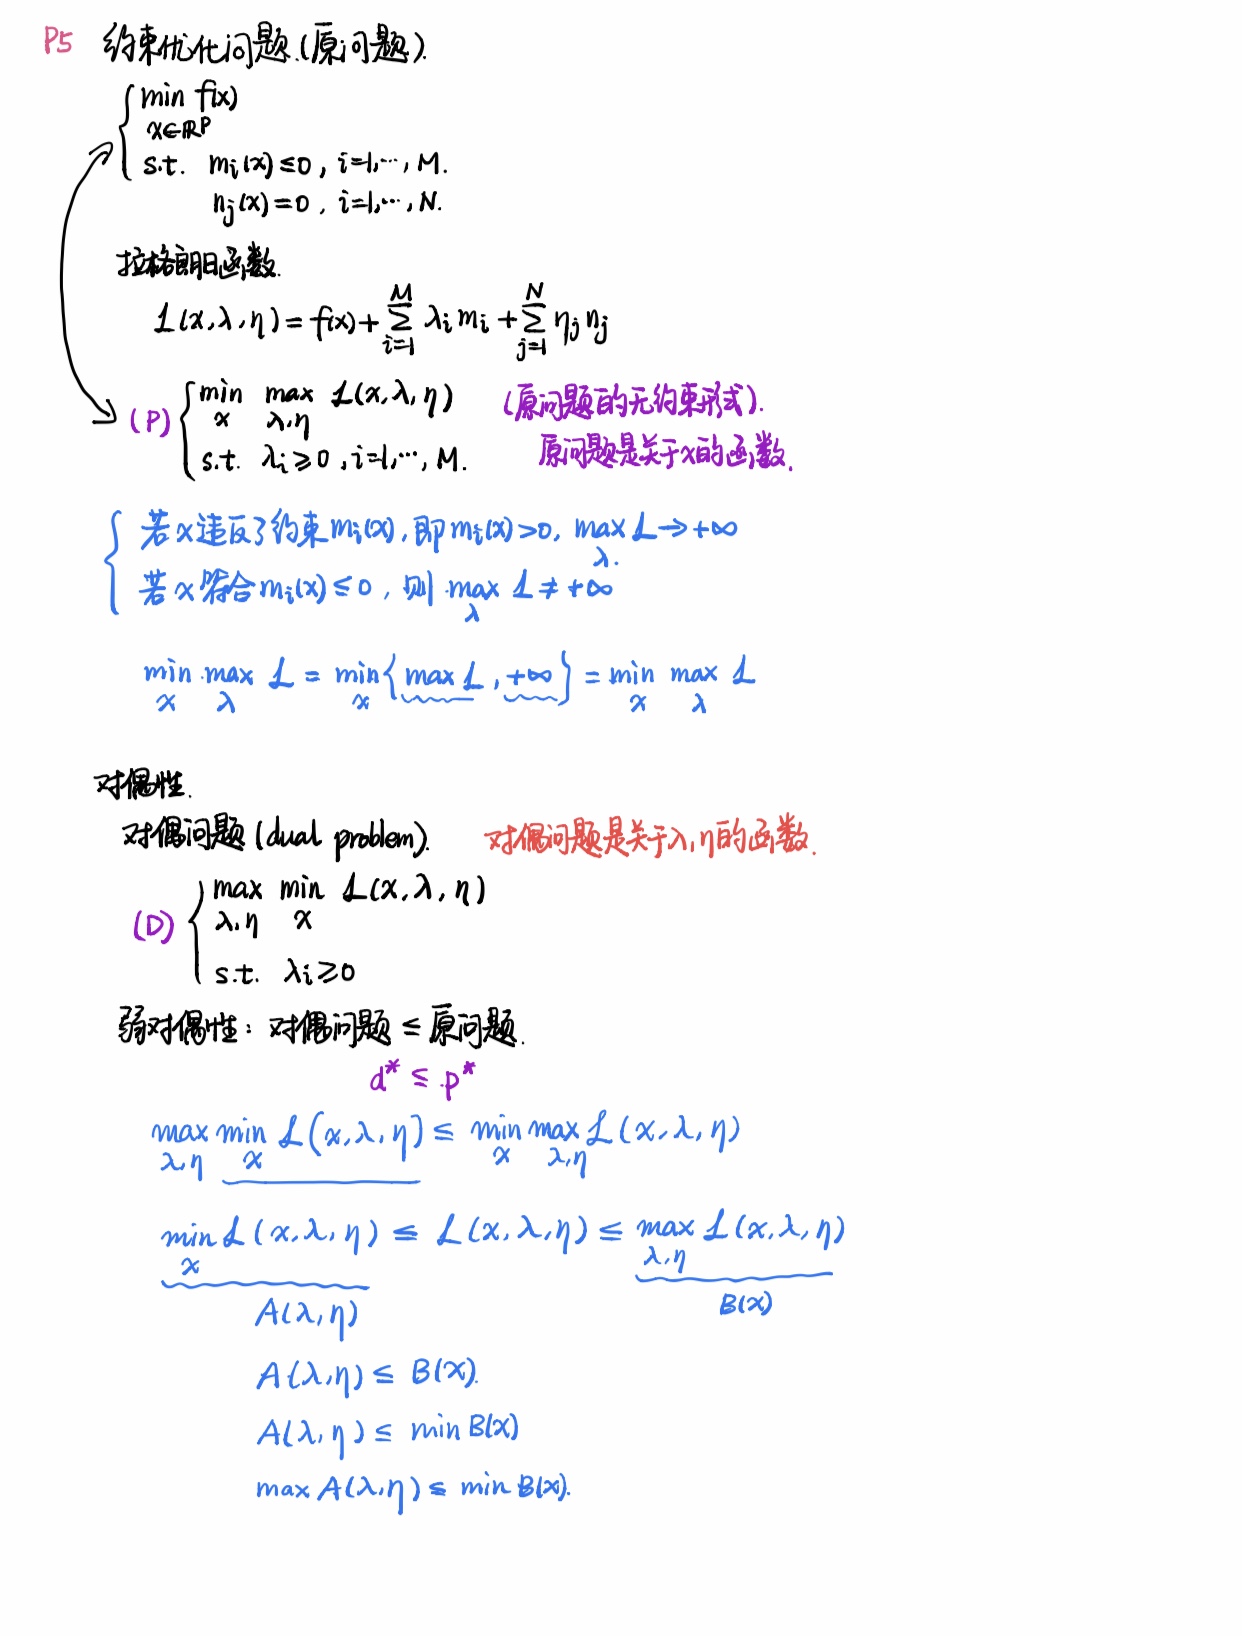 P5 约束优化问题.(原问题).
min f(x)
x∈ℝᵖ
s.t. mᵢ(x)≤0, i=1,…,M.
nⱼ(x)=0, i=1,…,N.
拉格朗日函数.
ℒ(x,λ,η)=f(x)+∑ᵢ₌₁ᴹ λᵢmᵢ+∑ⱼ₌₁ᴺ ηⱼnⱼ
(P) min max ℒ(x,λ,η) (原问题的无约束形式).
x λ,η
s.t. λᵢ≥0, i=1,…,M. 原问题是关于x的函数.
若x违反了约束mᵢ(x), 即mᵢ(x)>0, max ℒ→+∞
λ.
若x符合mᵢ(x)≤0, 则 max ℒ≠+∞
λ
min max ℒ = min{max ℒ, +∞} = min max ℒ
x λ x x λ
对偶性.
对偶问题(dual problem). 对偶问题是关于λ,η的函数.
(D) max min ℒ(x,λ,η)
λ,η x
s.t. λᵢ≥0
弱对偶性: 对偶问题≤原问题.
d*≤p*
max min ℒ(x,λ,η)≤ min max ℒ(x,λ,η)
λ,η x x λ,η
min ℒ(x,λ,η)≤ ℒ(x,λ,η)≤ max ℒ(x,λ,η)
x λ,η
A(λ,η) B(x)
A(λ,η)≤ B(x).
A(λ,η)≤ min B(x)
max A(λ,η)≤ min B(x).